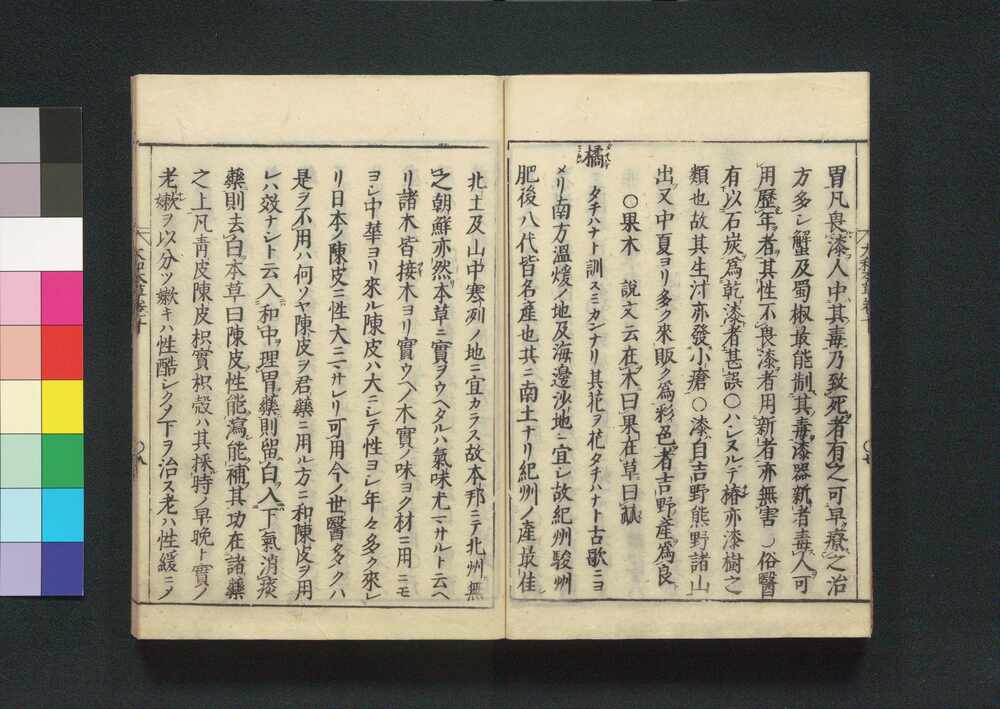 胃凡畏漆人中其毒乃致死者有之可早療之治
方多シ蟹及蜀椒最能制其毒漆器新者毒人可
用歷年者其性不畏漆者用新者亦無害○俗醫
有以石炭爲乾漆者甚誤○ハシヌルデ椿亦漆樹之
類也故其生汁亦發小瘡○漆自吉野熊野諸山
出又中夏ヨリ多ク來販ク爲彩色者吉野產爲良
○果木 說文云在木曰果在草曰蓏
橘 タチハナト訓スミカンナリ其花ヲ花タチハナト古歌ニヨ
メリ南方溫煖ノ地及海邊沙地ニ宜シ故紀州駿州
肥後八代皆名產也其ニ南土ナリ紀州ノ產最佳
北土及山中寒冽ノ地ニ宜カラス故本邦ニテ北州無
之朝鮮亦然本草ニ實ヲウヘタルハ氣味尤マサルト云ヘ
リ諸木皆接木ヨリ實ウヘノ木實ノ味ヨク材ニ用ニモ
ヨシ中華ヨリ來ル陳皮ハ大ニシテ性ヨシ年々多ク來レ
リ日本ノ陳皮ニ性大ニマサレリ可用今ノ世醫多クハ
是ヲ不用ハ何ソヤ陳皮ヲ君藥ニ用ル方ニ和陳皮ヲ用
レハ效ナシト云入和中理胃藥則留白入下氣消痰
藥則去白本草曰陳皮性能瀉能補其功在諸藥
之上凡靑皮陳皮枳實枳殼ハ其採時ノ早晚ト實ノ
老嫰ヲ以分ツ嫰キハ性酷シクノ下ヲ治ス老ハ性緩ニメ
大和本草卷十